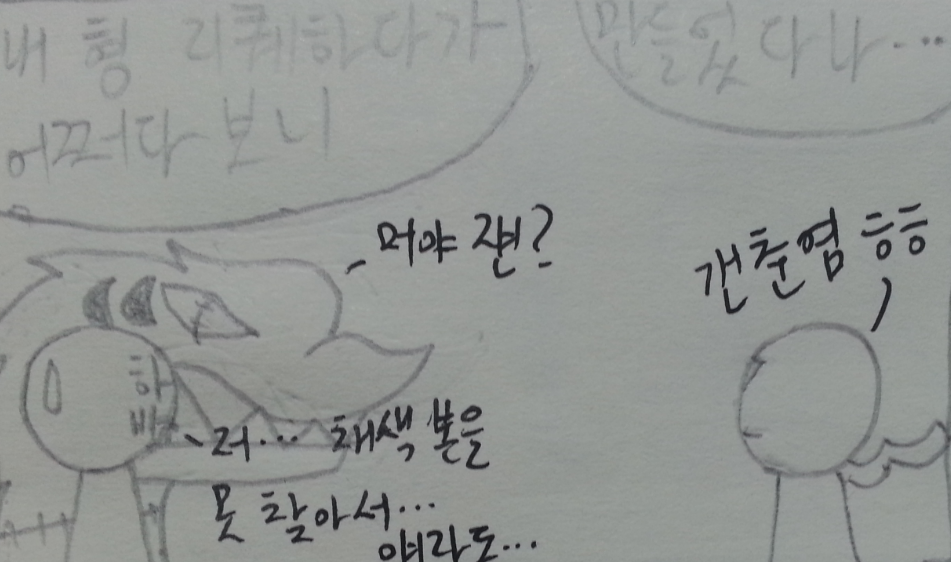 내 형 리퀘하다가
어쩌다 보니
만들었다나...
머야 쟨?
갠춘염 흐흐
하
빠
러... 채색본을
못 찾아서...
얘라도...